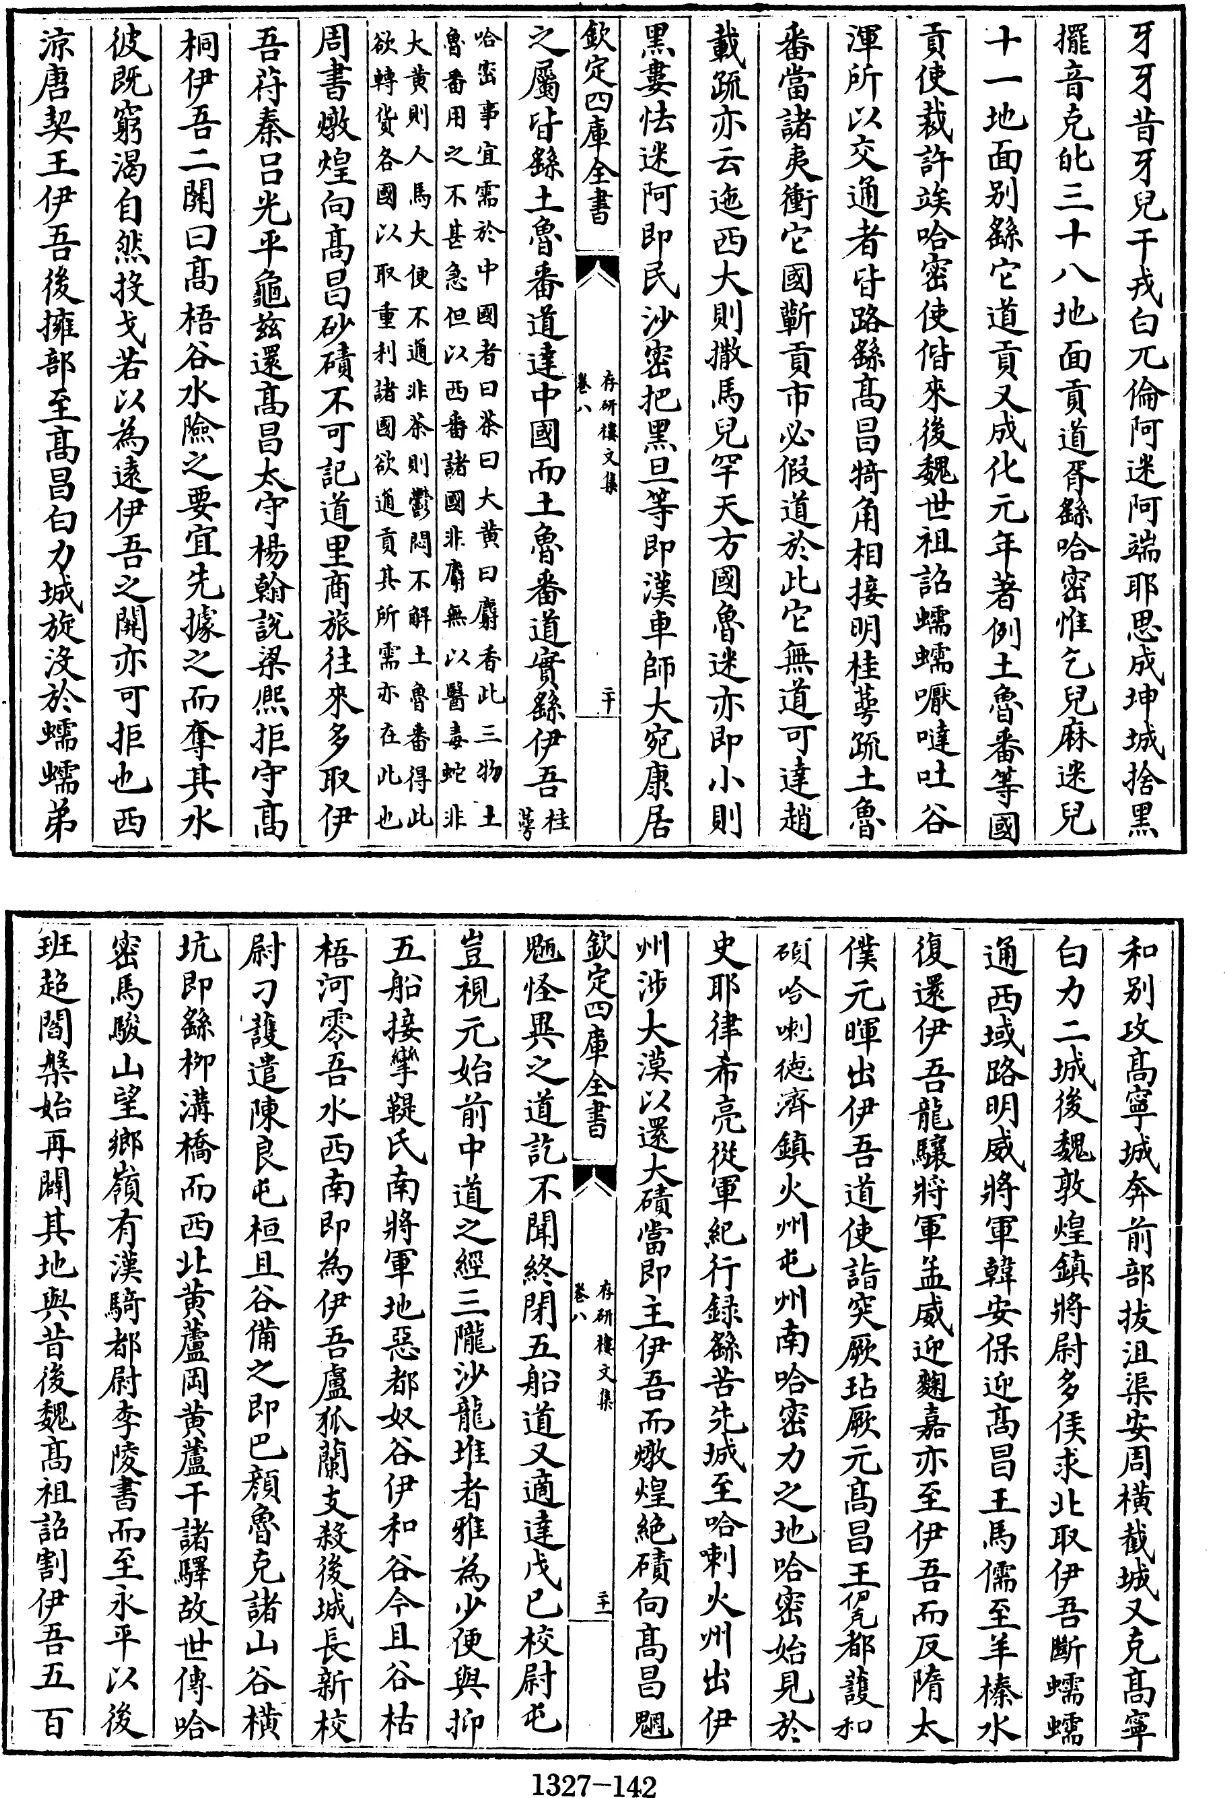 牙牙昔牙兒干戎白兀倫阿迷阿端耶思成坤城捨黑
擺音克㐌三十八地面貢道胥繇哈密惟乞兒麻迷兒
十一地面别繇它道貢又成化元年著例土魯番等國
貢使裁許竢哈密使偕來後魏世祖詔蠕蠕嚈噠吐谷
渾所以交通者皆路繇髙昌犄角相接明桂萼疏土魯
番當諸夷衝它國蘄貢市必假道於此它無道可達趙
載疏亦云迤西大則撒馬兒罕天方國魯迷亦即小則
黑婁怯迷阿即民沙密把黑旦等即漢車師大宛康居
欽定四庫全書
存研樓文集
卷八
二十
之屬皆繇土魯番道達中國而土魯番道實繇伊吾桂萼
哈密事宜需於中國者曰茶曰大黄曰麝香此三物土
魯番用之不甚急但以西番諸國非麝無以醫毒蛇非
大黄則人馬大便不通非茶則鬱悶不解土魯番得此
欲轉貨各國以取重利諸國欲通貢其所需亦在此也
周書燉煌向髙昌砂磧不可記道里商旅往來多取伊
吾苻秦吕光平龜兹還髙昌太守楊翰説梁熙拒守髙
桐伊吾二關曰髙梧谷水險之要宜先據之而奪其水
彼既窮渴自然投戈若以為逺伊吾之關亦可拒也西
涼唐契王伊吾後擁部至髙昌白力城旋没於蠕蠕弟
和别攻髙寧城奔前部拔沮渠安周横截城又克髙寧
白力二城後魏敦煌鎮將尉多侯求北取伊吾斷蠕蠕
通西域路明威將軍韓安保迎髙昌王馬儒至羊榛水
復還伊吾龍驤將軍孟威迎麴嘉亦至伊吾而反隋太
僕元暉出伊吾道使詣突厥玷厥元髙昌王伊克都䕶和
碩哈喇徳濟鎮火州屯州南哈密力之地哈密始見於
史耶律希亮從軍紀行録繇苦先城至哈喇火州出伊
州渉大漠以還大磧當即主伊吾而燉煌絶磧向髙昌魍
欽定四庫全書
存研樓文集
卷八
二十一
魎怪異之道訖不聞終閉五船道又適達戊已校尉屯
豈視元始前中道之經三隴沙龍堆者雅為少便與抑
五船接攣鞮氏南將軍地惡都奴谷伊和谷今且谷枯
梧河零吾水西南即為伊吾盧狐蘭支殺後城長新校
尉刁䕶遣陳良屯桓且谷備之即巴顔魯克諸山谷横
坑即繇柳溝橋而西北黄蘆岡黄蘆干諸驛故世傳哈
密馬騣山望鄉嶺有漢騎都尉李陵書而至永平以後
班超閻槃始再闢其地與昔後魏髙祖詔割伊吾五百
1327-142